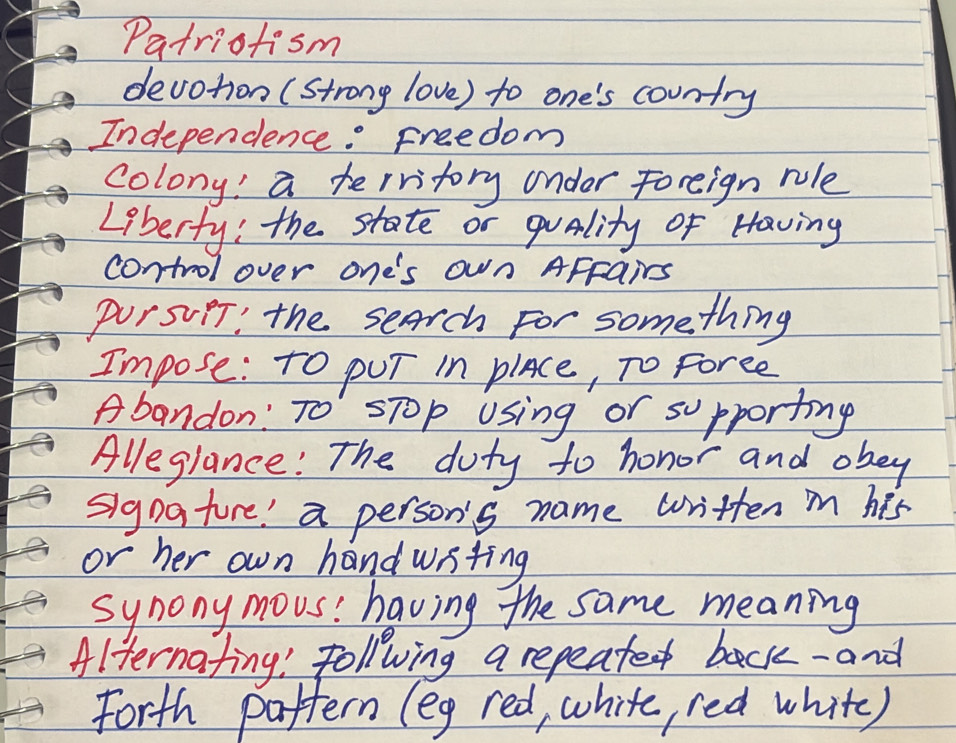 Patriotism
devotion (strong love) to one's country
Independence: Freedom
Colony: a territory under Foreign rule
Liberty: the state or quality of Having
control over one's own Affairs
Pursuit: the search For something
Impose: To put in place, To Force
Abandon: To stop using or supporting
Allegiance: The duty to honor and obey
signature: a person's name written in his
or her own handwriting
synonymous: having the same meaning
Alternating: Following a repeated back-and
Forth pattern (eg red, white, red white)